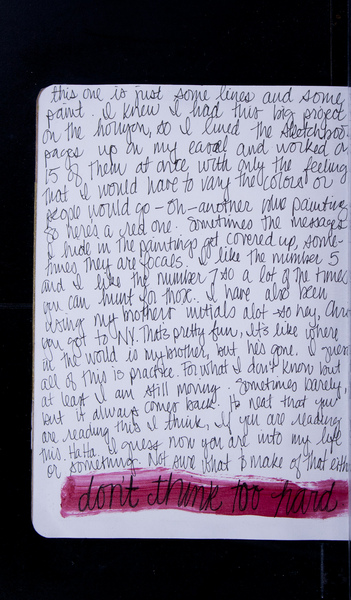 this one is just some lines and some
paint. I knew I had this big project
on the horizon, so I lined the sketchboo
pages up on my easel and worked on
15 of them at once with only the feeling
that I would have to vary the colors or
people would go - oh - another blue painting
so here's a red one. Sometimes the messages
I hide in the paintings get covered up, some-
times they are focals. I like the number 5
and I like the number 7 so a lot of the times
you can hunt for those. I have also been
using my brothers initials alot so hey, Chri
you got to NY. That's pretty fun, it's like where
in the world is my brother, but he's gone. I guess
all of this is practice. For what I don't know but
at least I am still moving. Sometimes barely,
but it always comes back. Its neat that you
are reading this I think, if you are reading
this. HaHa. I guess now you are into my life
or something. Not sure what to make of that eith
don't think too hard